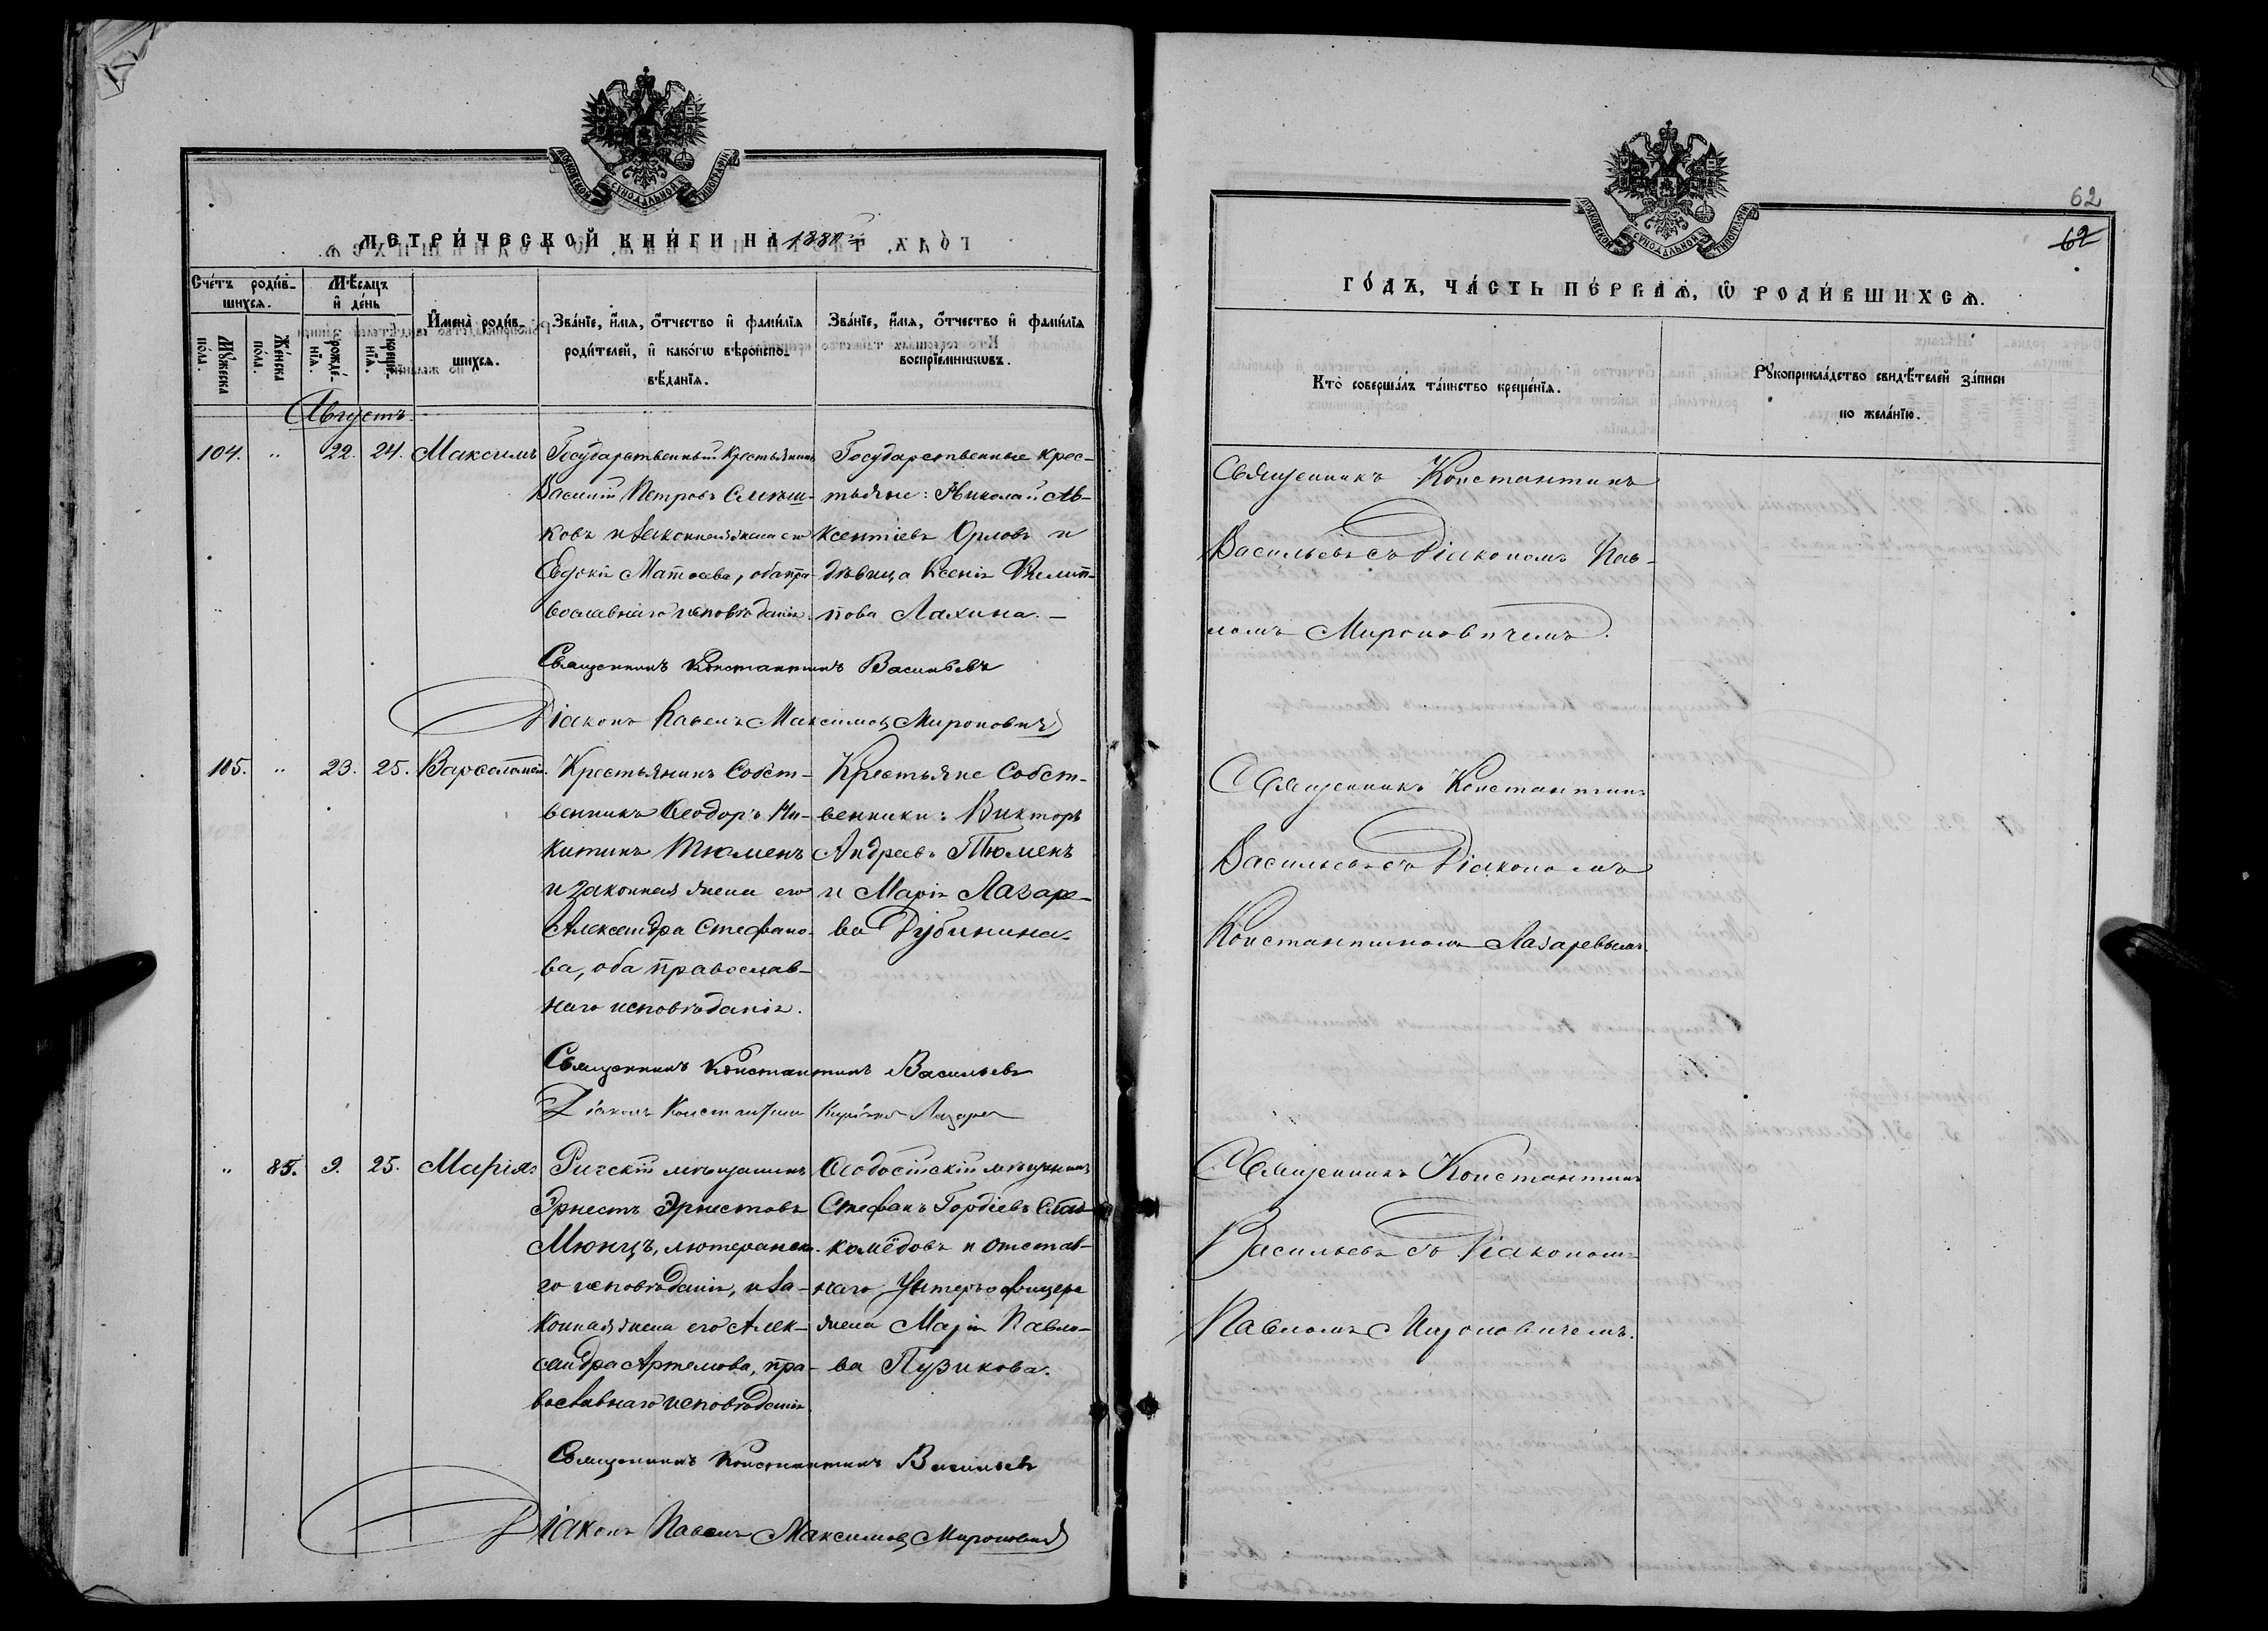 МОСКОВСКОЙ СѴНОДАЛЬНОЙ ТИПОГРАФІИ
МЕТРИ́ЧЕСКОЙ КНИ́ГИ НА 1880 й
Сче́тъ роди́в-
шихсѧ.
Мѣ́сѧцъ
и҆ де́нь
Мꙋ́жеска
пола.
Же́нска
пола.
рожде́-
нїѧ.
креще́-
нїѧ.
И҆мена̀ роди́в-
шихсѧ.
Зва́нїе, и҆́мѧ, ѻ҆́тчество и҆ фамі́лїѧ
роди́телей, и҆ како́гѡ вѣроиспо-
вѣ́данїѧ.
Зва́нїе, и҆́мѧ, ѻ҆́тчество и҆ фамі́лїѧ
воспрїе́мникѡвъ.
Августъ.
104. " 22. 24. Максимъ
Государственный Крестьянинъ
Василій Петровъ Слюш-
ковъ и законная жена его
Евдокія Матѳеева, оба пра-
вославнаго исповѣданія.
Государственные крес-
тьяне: Николай Ав-
ксентіевъ Орловъ и
дѣвица Ксенія Филип-
пова Лахина. —
Священникъ Константинъ Васильевъ
Діаконъ Павелъ Максимовъ Мироновичъ
105. " 23. 25. Варѳоломей.
Крестьянинъ Собст-
венникъ Ѳеодоръ Ни-
китинъ Тюменъ
и законная жена его
Александра Стефано-
ва, оба православ-
наго исповѣданія.
Крестьяне Собст-
венники: Викторъ
Андреевъ Тюменъ
и Марія Лазаре-
ва Дубинина.
Священникъ Константинъ Васильевъ
Діаконъ Константинъ Лазаревъ
" 85. 9. 25. Марія.
Рижскій мѣщанинъ
Эрнестъ Эрнестовъ
Мюнцъ, лютеранска-
го исповѣданія, и за-
конная жена его Алек-
сандра Артемова, пра-
вославнаго исповѣданія.
Ѳеодосійскій мѣщанинъ
Стефанъ Гордіевъ Слас-
комёдовъ и отстав-
наго Унтеръ-офицера
жена Марія Павло-
ва Пузикова.
Священникъ Константинъ Васильевъ
Діаконъ Павелъ Максимовъ Мироновичъ
62
62
МОСКОВСКОЙ СѴНОДАЛЬНОЙ ТИПОГРАФІИ
ГО́ДЪ, ЧА́СТЬ ПЕ́РВАѦ, Ѡ҆ РОДИ́ВШИХСѦ.
Кто̀ соверша́лъ та́инство креще́нїѧ.
Рꙋкоприкла́дство свидѣ́телей за́писи
по жела́нїю.
Священникъ Константинъ
Васильевъ съ Діакономъ Пав-
ломъ Мироновичемъ.
Священникъ Константинъ
Васильевъ съ Діакономъ
Константиномъ Лазаревымъ.
Священникъ Константинъ
Васильевъ съ Діакономъ
Павломъ Мироновичемъ.